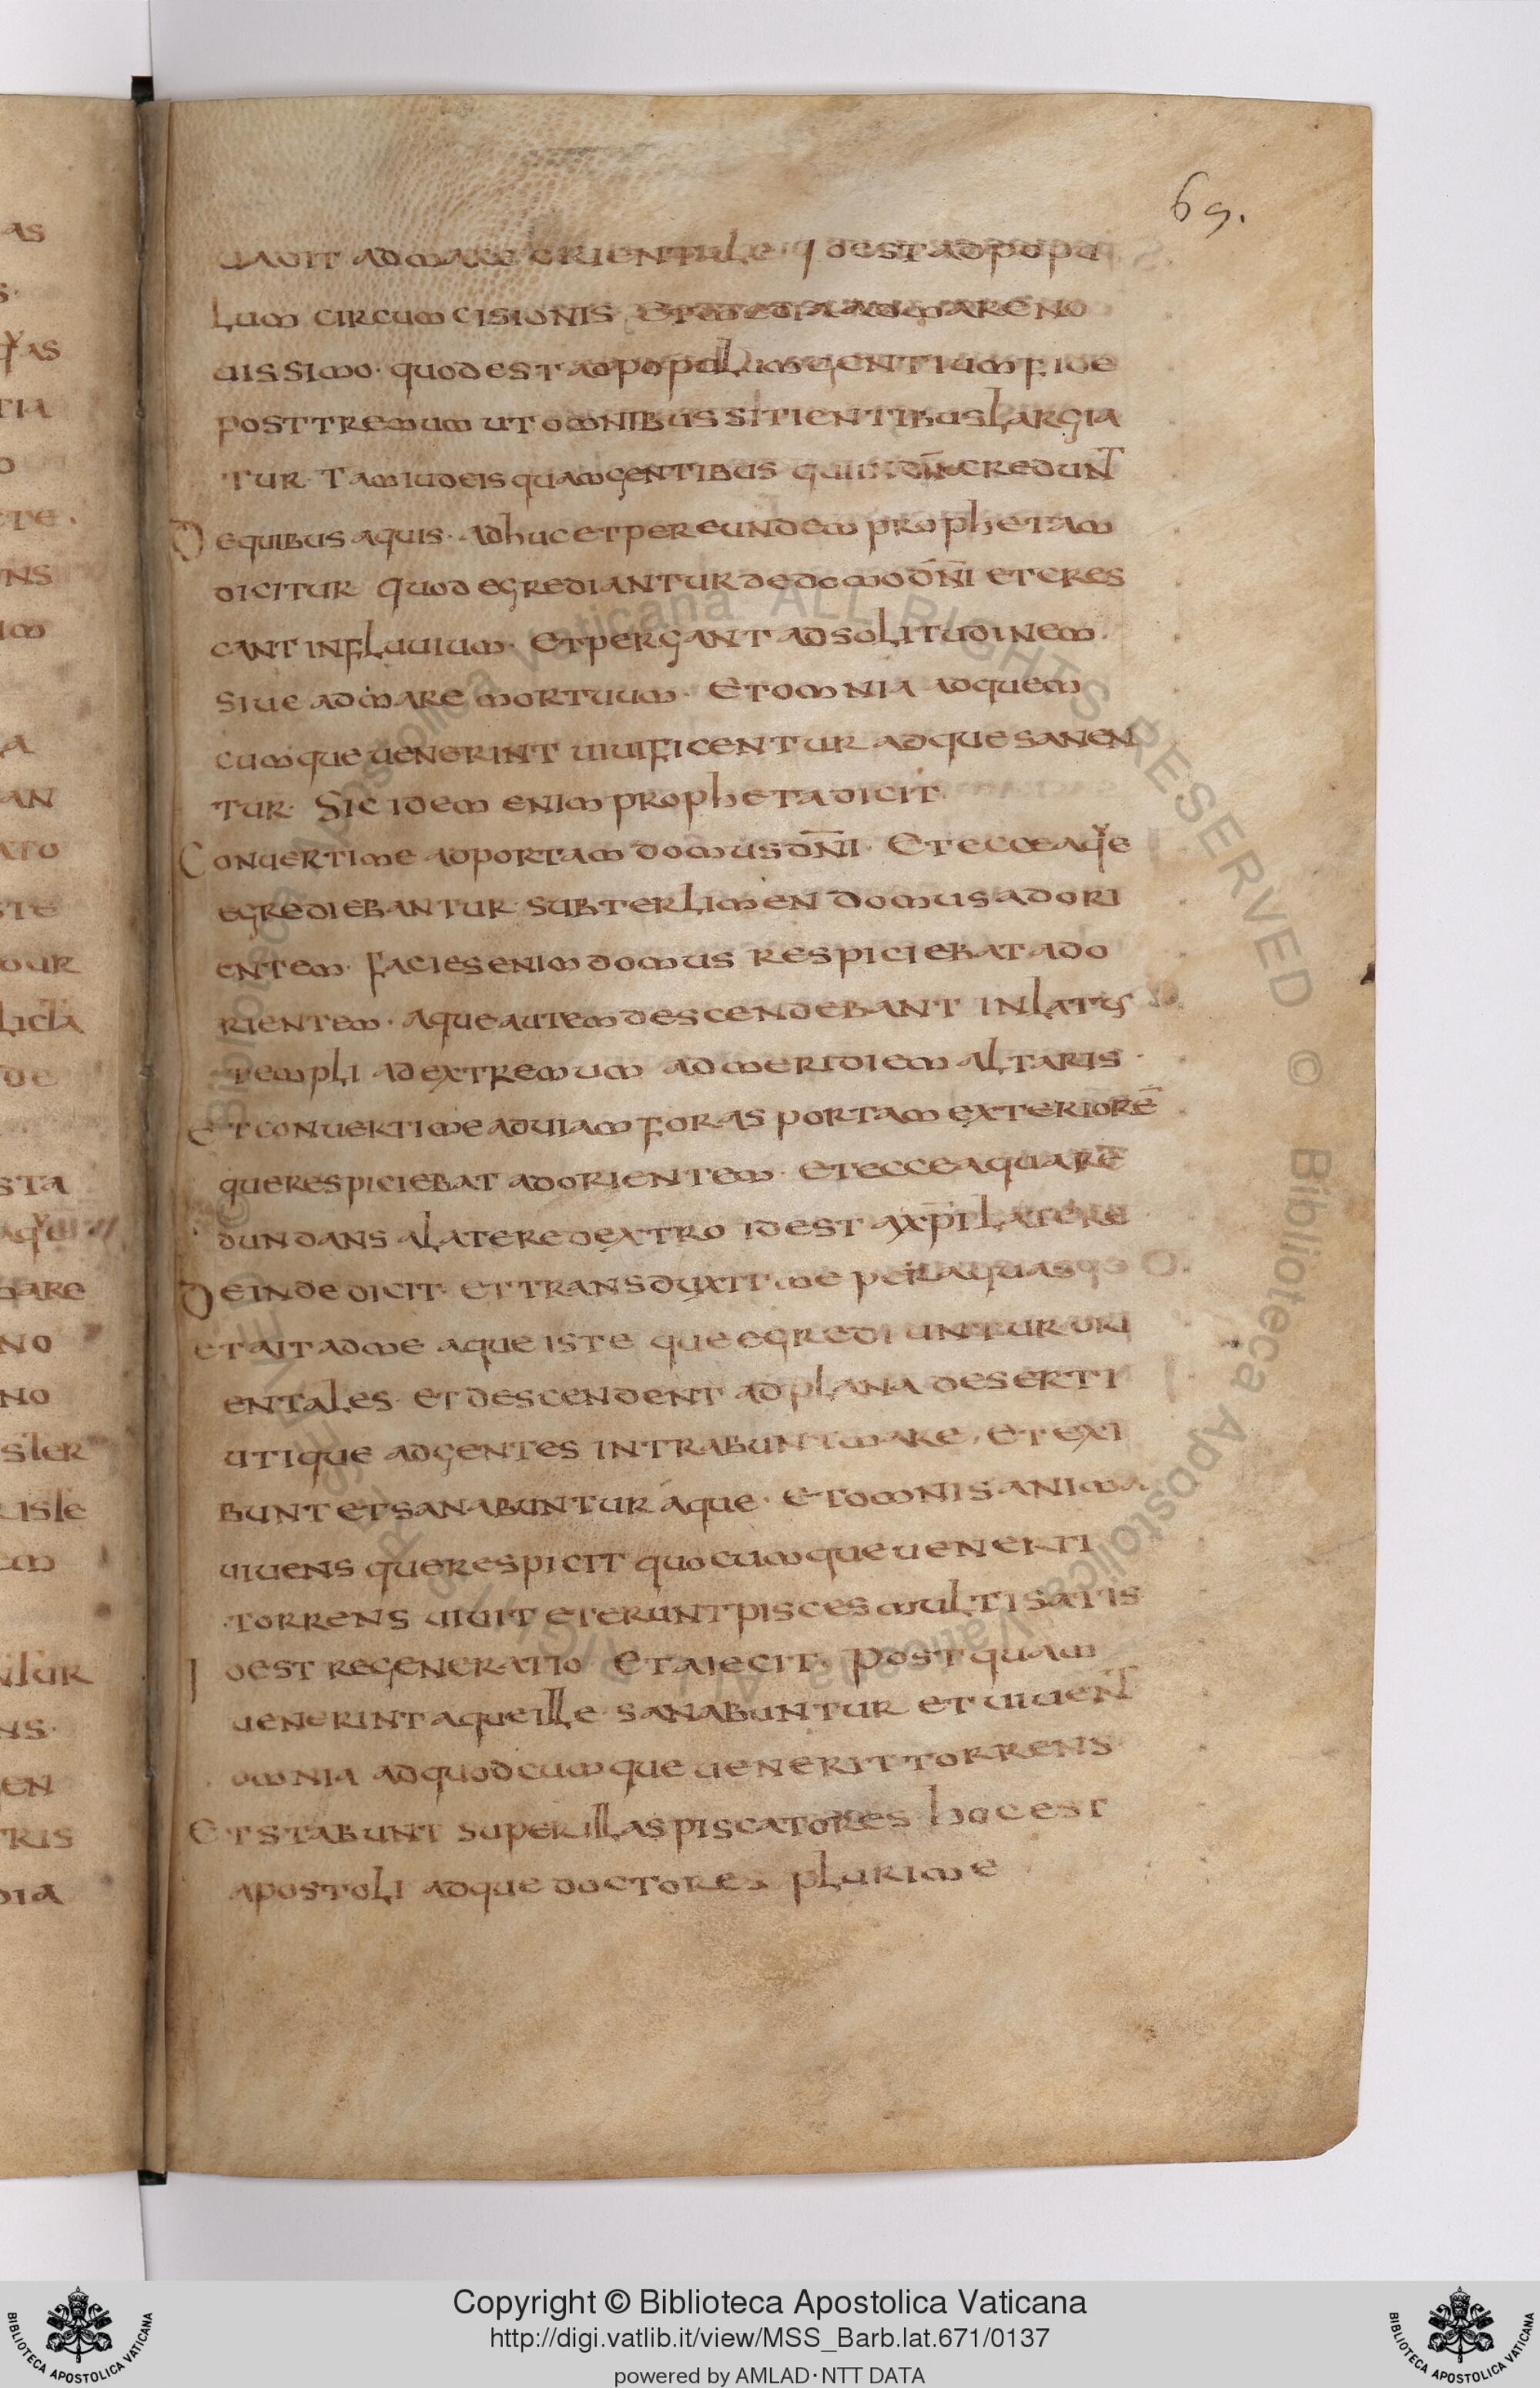 69.
uadit ad mare orientale · idest ad popu
lum circumcisionis et medietas ad mare no
uissimo · quod est ad populum gentium fide
posttremum ut omnibus sitientibus largia
tur · Tam iudeis quam gentibus qui in dn̄m credunt
De quibus aquis · adhuc et per eundem prophetam
dicitur quod egrediantur de domo dn̄i et cres
cant in fluuium · Et pergant ad solitudinem ·
siue ad mare mortuum · Et omnia ad quem
cumque uenerint uiuificentur adque sanen
tur · Sic idem enim propheta dicit
Conuerti me ad portam domus dn̄i · Et ecce aque
egrediebantur subter limen domus ad ori
entem · facies enim domus respiciebat ad o
rientem · aque autem descendebant in latus
templi ad extremum ad meridiem altaris ·
Et conuerti me ad uiam foras portam exteriorē
que respiciebat ad orientem · et ecce aqua rē
dundans a latere dextro idest a xp̄i latere
Deinde dicit · et transduxit me per aquas
et ait ad me aque iste que egrediuntur ori
entales · et descendent ad plana deserti
utique ad gentes intrabunt mare, et exi
bunt et sanabuntur aque · et omnis anima
uiuens que respicit quocumque uenerit
torrens uiuit et erunt pisces multi satis
Idest regeneratio Et aiecit · Postquam
uenerint aque ille sanabuntur et uiuent
omnia ad quodcumque uenerit torrens
Et stabunt super illas piscatores hoc est
apostoli adque doctores plurime
Copyright © Biblioteca Apostolica Vaticana
http://digi.vatlib.it/view/MSS_Barb.lat.671/0137
powered by AMLAD·NTT DATA